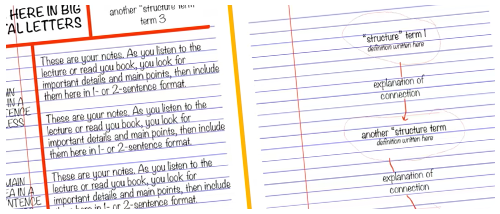 HERE IN BIG
AL LETTERS
another "structure term
term 3
These are your notes. As you listen to the
lecture or read you book, you look for
important details and main points, then include
them here in 1- or 2-sentence format.
IN A
TENCE
ESS
These are your notes. As you listen to the
lecture or read you book, you look for
important details and main points, then include
them here in 1- or 2-sentence format.
MAIN
EA IN A
NTENCE
These are your notes. As you listen to the
lecture or read you book, you look for
important details and main points, then include
them here in 1- or 2-sentence format.
"structure" term 1
definition written here
explanation of
connection
another "structure term
definition written here
explanation of
connection